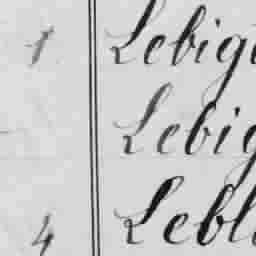 1 Lebig
Lebig
4 Lebl